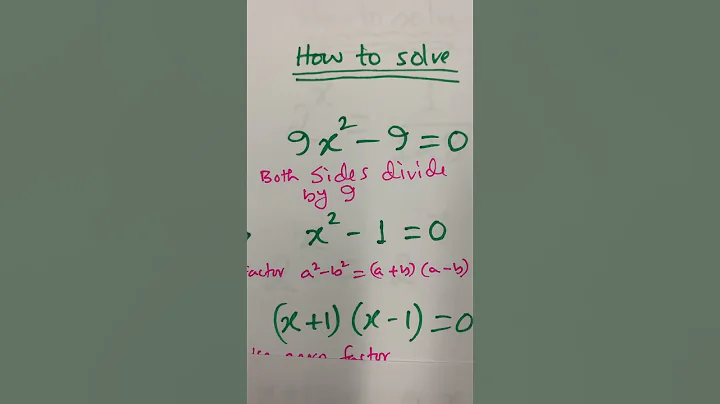 How to solve
9x² - 9 = 0
Both sides divide
by 9
x² - 1 = 0
factor a²-b² = (a+b) (a-b)
(x+1) (x-1) = 0
factor